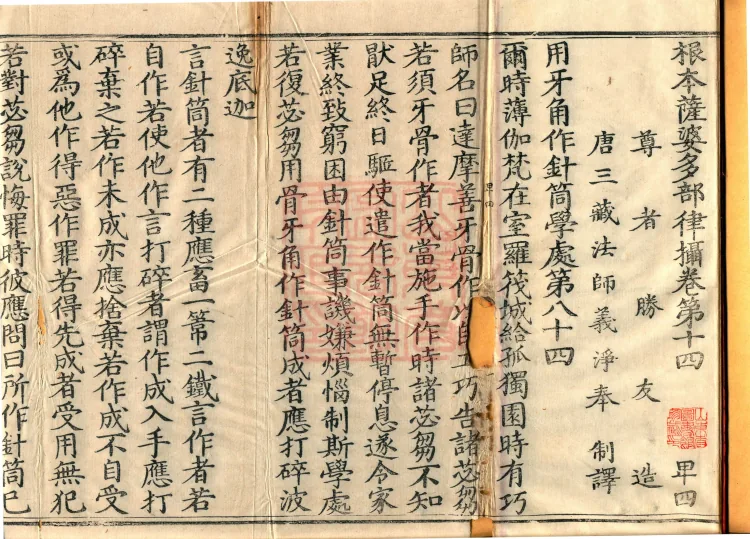 根本薩婆多部律攝卷第十四 甲四
尊者勝友造
唐三藏法師義淨奉制譯
用牙角作針筒學處第八十四
爾時薄伽梵在室羅筏城給孤獨園時有巧
師名曰達摩善牙骨作 巧告諸苾芻
若須牙骨作者我當施手作時諸苾芻不知
猒足終日驅使遣作針筒無暫停息遂令家
業終致窮困由針筒事譏嫌煩惱制斯學處
若復苾芻用骨牙角作針筒成者應打碎波
逸底迦
言針筒者有二種應畜一䈂二鐵言作者若
自作若使他作言打碎者謂作成入手應打
碎棄之若作未成亦應捨棄若作成不自受
或為他作得惡作罪若得先成者受用無犯
若對苾芻說悔罪時彼應問曰所作針筒已